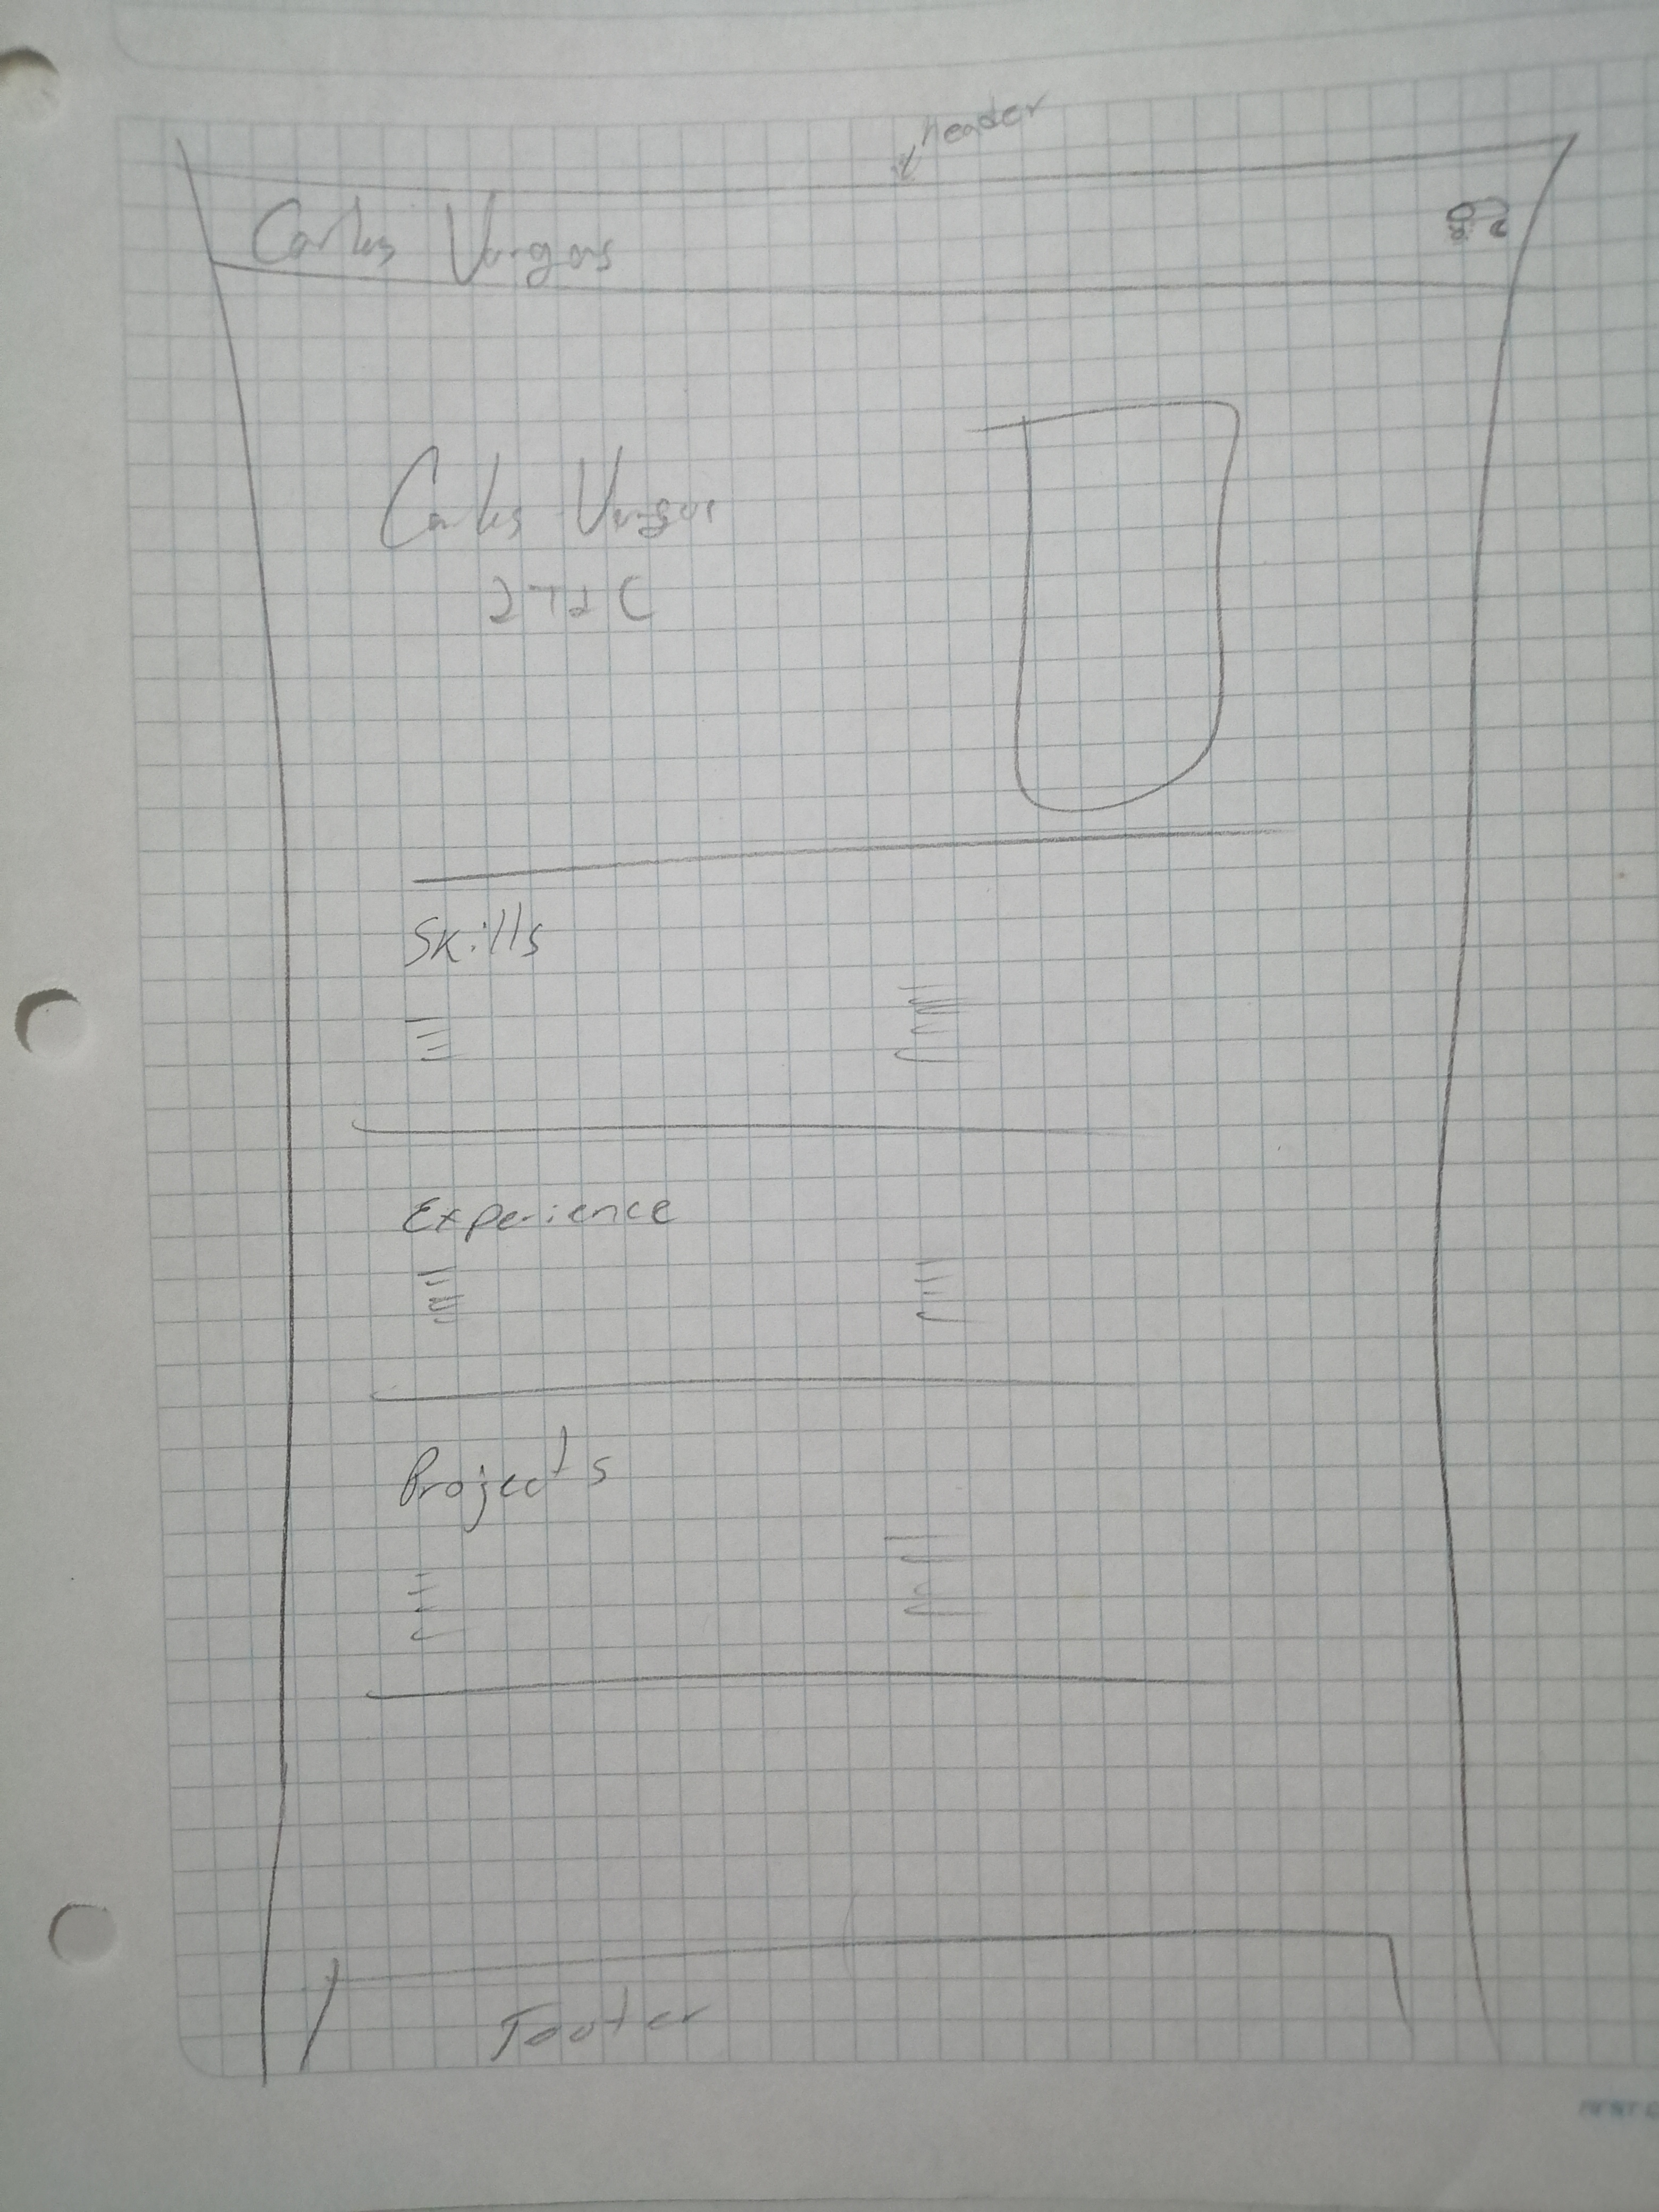 header
Carlos Vargas
Carlos Vargas
Skills
Experience
Projects
Footer